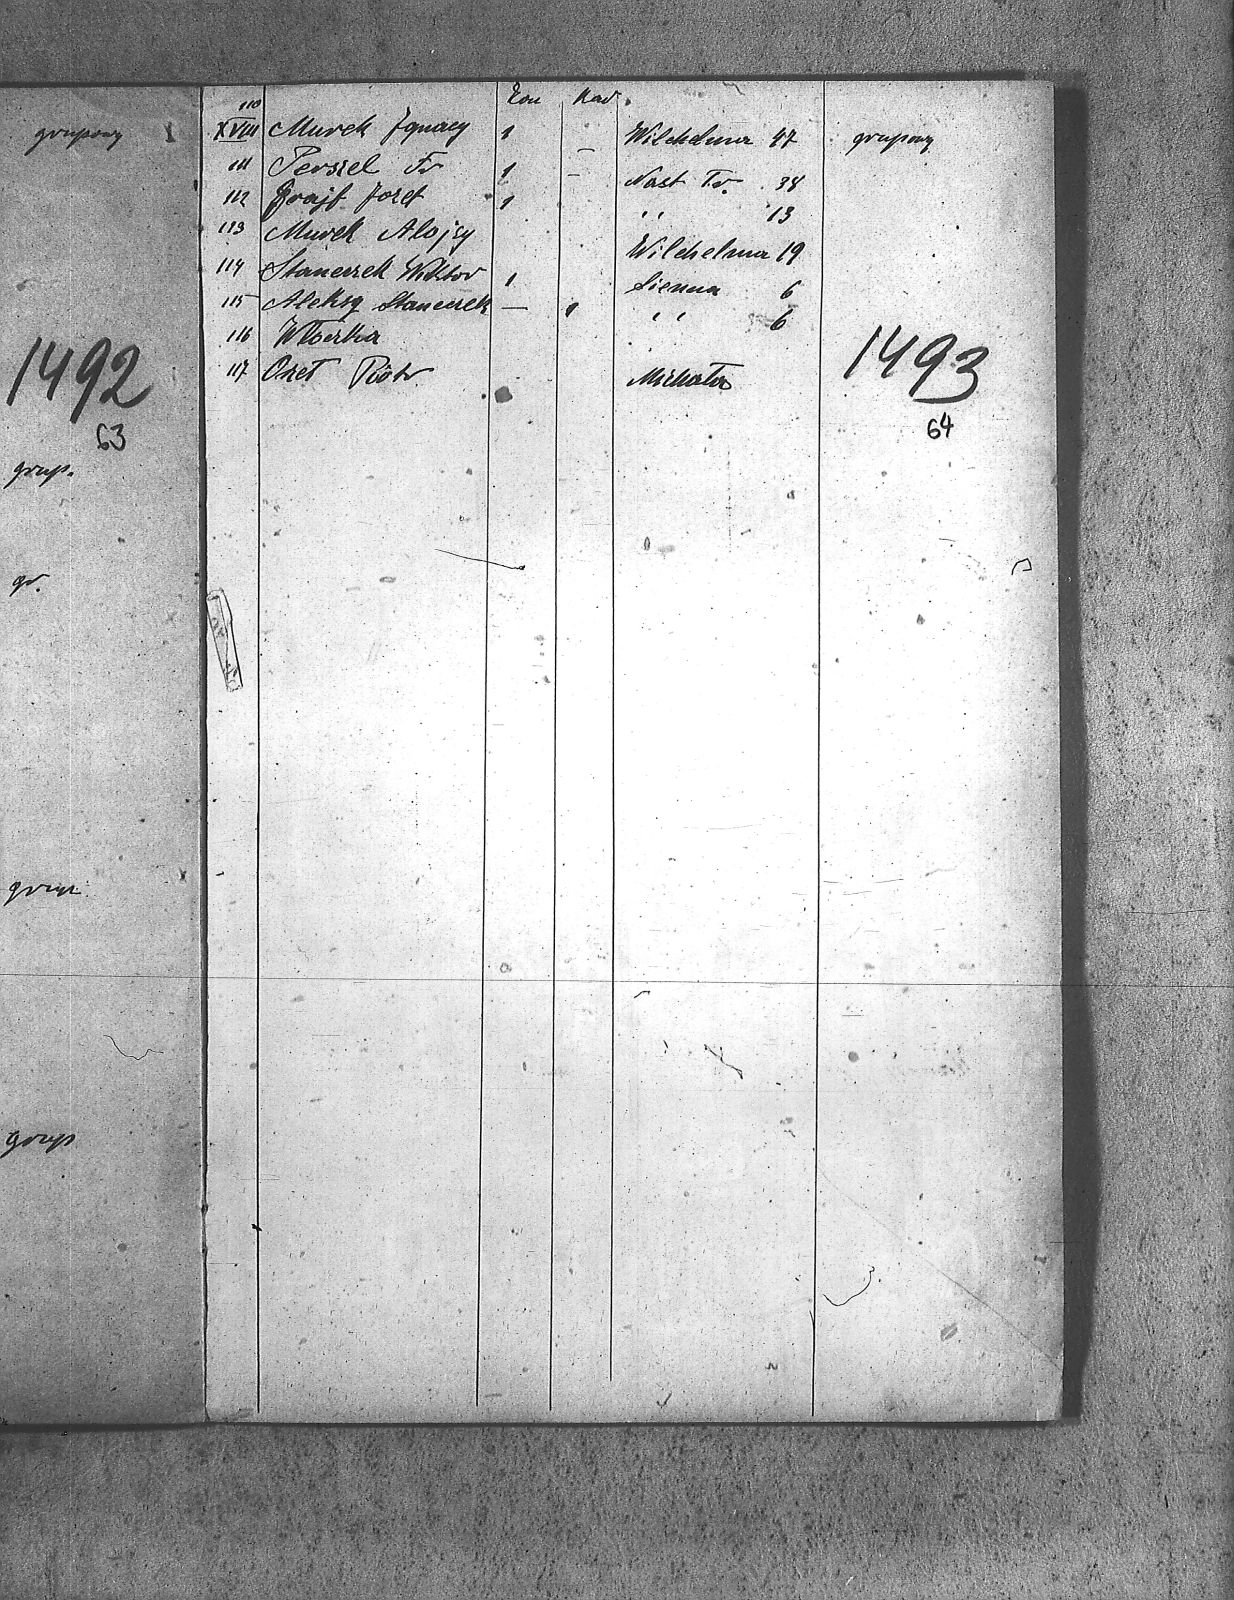 grupowy
1492
63
grup.
gr.
grup.
grup
110
XVIII Murek Ignacy 1 – Wilchelma 47 grupowy
111 Persiel Fr 1 – Nast Tr. 38
112 Grajf Józef 1 '' 13
113 Murek Alojzy Wilchelma 19
114 Stanczek Wiktor 1 Sienna 6
115 Aleksy Stanczek – 1 '' 6
116 Włoczka
117 Ozet Piotr Michała
1493
64